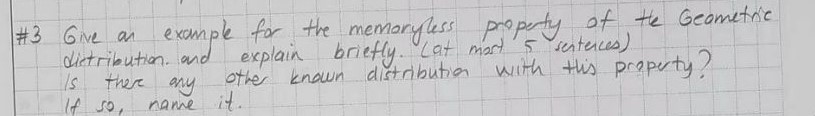 #3 Give an example for the memoryless property of the Geometric
distribution. and explain briefly. (at most 5 sentences)
Is there any other known distribution with this property?
If so, name it.